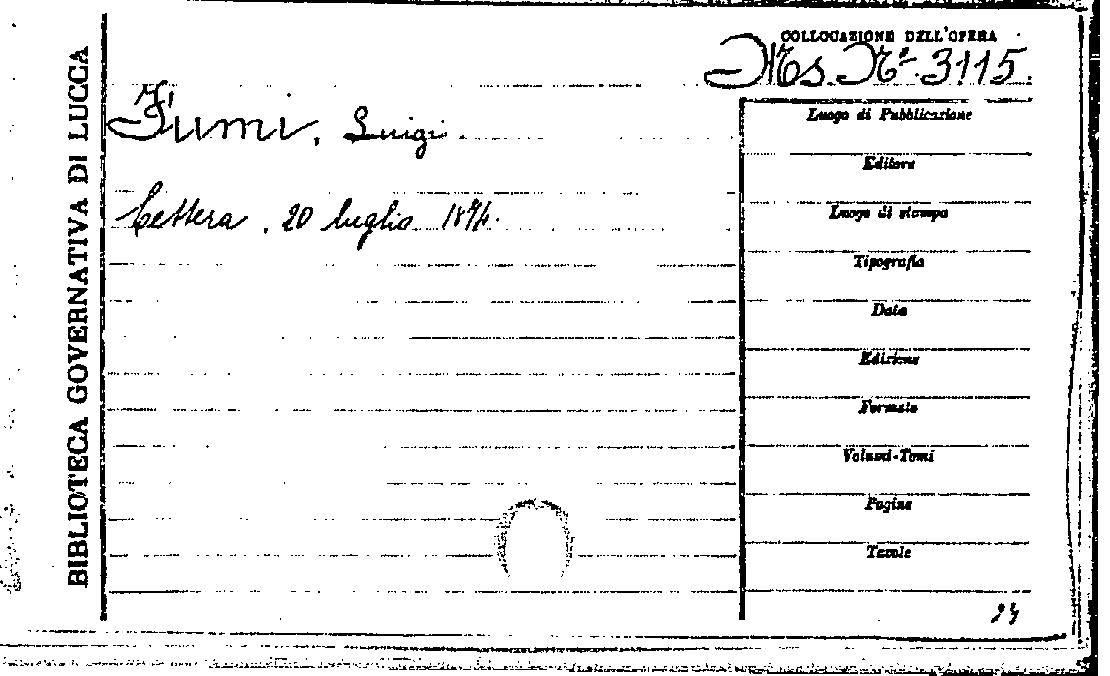 BIBLIOTECA GOVERNATIVA DI LUCCA
COLLOCAZIONE DELL'OPERA
Ms. Nº 3115.
Fumi, Luigi.
Lettera. 20 luglio
Luogo di Pubblicazione
Editore
Luogo di stampa
Tipografia
Data
Edizione
Formato
Volumi-Tomi
Pagine
Tavole
24